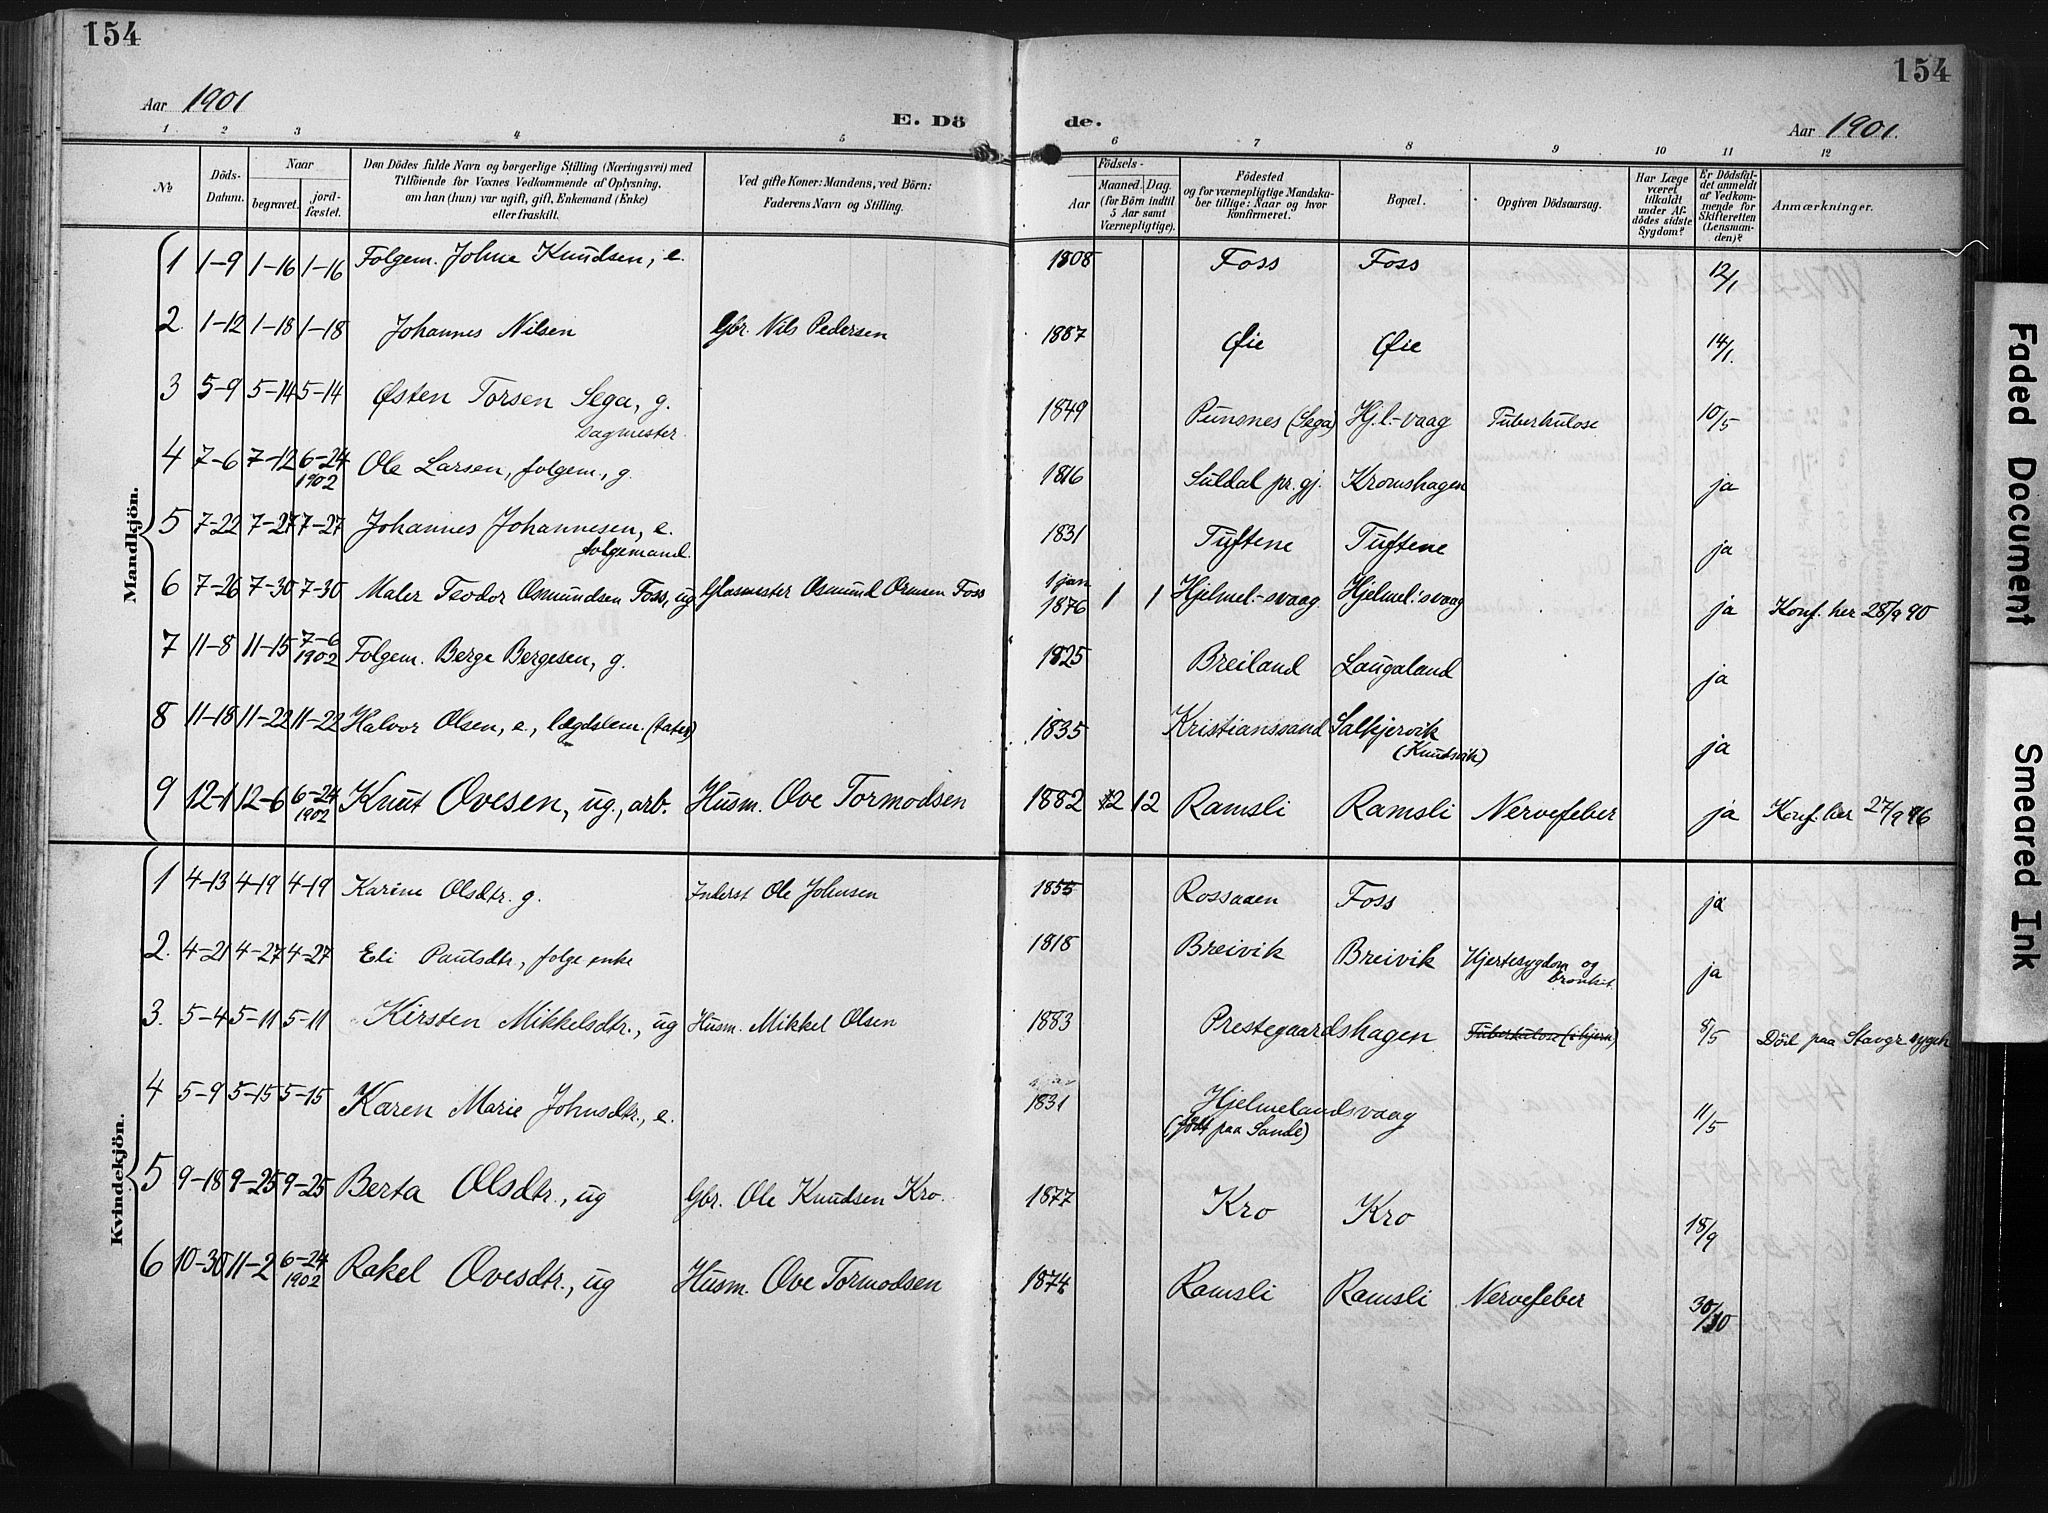 154
154
Aar 1901
E. Döde.
Aar 1901.
1 2 3 4 5 6 7 8 9 10 11 12
№
Döds-Datum.
Naar
begravet.
jord-fæstet.
Den Dödes fulde Navn og borgerlige Stilling (Næringsvei) med
Tilföiende for Voxnes Vedkommende af Oplysning,
om han (hun) var ugift, gift, Enkemand (Enke)
eller fraskilt.
Ved gifte Koner: Mandens, ved Börn:
Faderens Navn og Stilling.
Födsels-
Aar
Maaned. Dag.
(for Börn indtil
5 Aar samt
Værnepligtige).
Födested
og for værnepligtige Mandska-
ber tillige: Naar og hvor
konfirmeret.
Bopæl.
Opgiven Dödsaarsag.
Har Læge
været
tilkaldt
under Af-
dödes sidste
Sygdom?
Er Dödsfal-
det anmeldt
af Vedkom-
mende for
Skifteretten
(Lensman-
den)?
Anmærkninger.
Mandkjön.
1 1-9 1-16 1-16 Folgem. Johne Knudsen, e. 1808 Foss Foss 12/1
2 1-12 1-18 1-18 Johannes Nilsen Gbr. Nils Pedersen 1887 Øie Øie 14/1.
3 5-9 5-14 5-14 Østen Torsen Sega, g. 1849 Punsnes (Sega) Hjl.-vaag Tuberkulose 10/5
Sagmester.
4 7-6 7-12 6-24 1902 Ole Larsen, folgem., g. 1816 Suldal pr. gj. Kromshagen ja
5 7-22 7-27 7-27 Johannes Johannesen, e. 1831 Tuftene Tuftene ja
folgemand.
6 7-26 7-30 7-30 Maler Teodor Osmundsen Foss, ug Glasmester Osmund Ormsen Foss 1 jan 1876 1 1 Hjelmel.-svaag Hjelmel.'svaag ja Konf. her 28/9 90
7 11-8 11-15 7-6 1902 Folgem. Berge Bergesen, g. 1825 Breiland Laugaland ja
8 11-18 11-22 11-22 Halvor Olsen, e., lægdslem. (tater) 1835 Kristianssand Salkjervik ja
(Knudsvik)
9 12-1 12-6 6-24 1902 Knut Ovesen, ug., arb. Husm. Ove Tormodsen 1882 12 12 Ramsli Ramsli Nervefeber ja Konf. her 27/9 96
Kvindekjön.
1 4-13 4-19 4-19 Karine Olsdtr. g. Inderst Ole Johnsen 1855 Rossaaen Foss ja
2. 4-21 4-27 4-27 Eli Paulsdtr., folgeenke 1818 Breivik Breivik Hjertesygdom og bronkit. ja
3. 5-4 5-11 5-11 Kirsten Mikkelsdtr., ug Husm. Mikkel Olsen 1883 Prestegaardshagen Tuberkulose (i hjern) 8/5 Död paa Stavgr sygeh
4 5-9 5-15 5-15 Karen Marie Johnsdtr., e. 1831 Hjelmelandsvaag 11/5
(født paa Sande)
5 9-18 9-25 9-25 Berta Olsdtr., ug Gbr. Ole Knudsen Kro. 1877 Kro Kro 18/9
6 10-30 11-2 6-24 1902 Rakel Ovesdtr., ug Husm. Ove Tormodsen 1874 Ramsli Ramsli Nervefeber 30/10
Faded Document
Smeared Ink